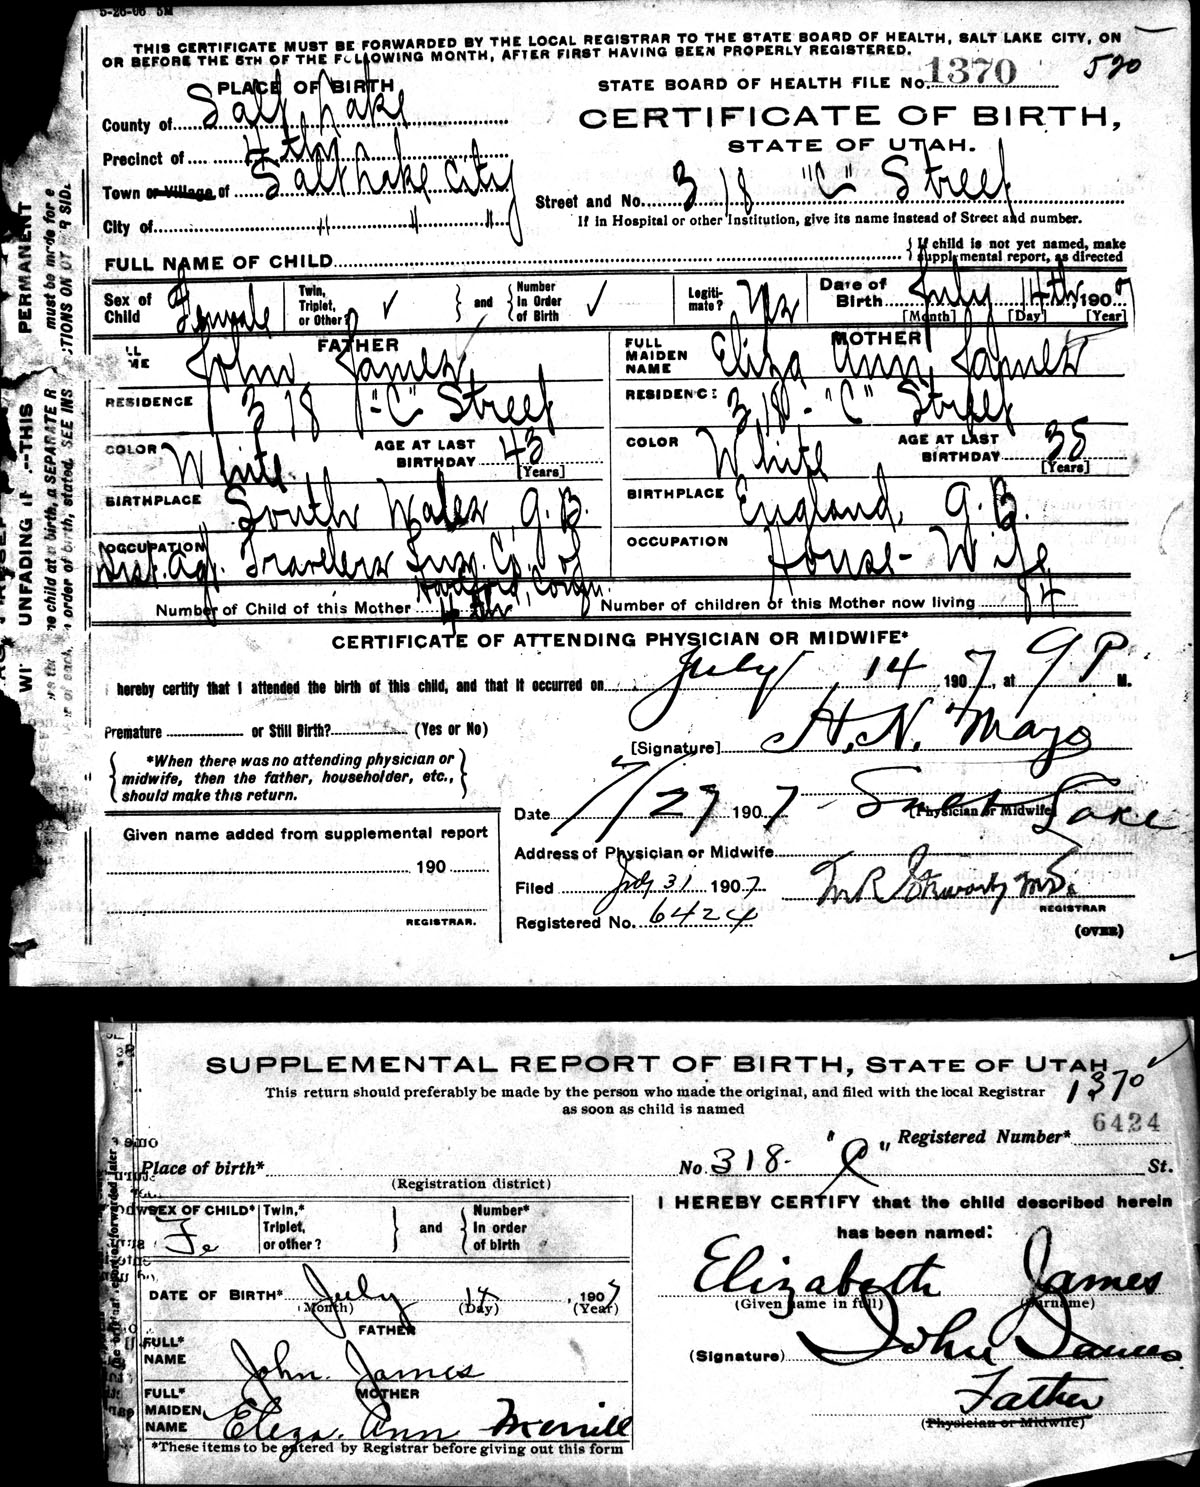 5-26-06 5M
THIS CERTIFICATE MUST BE FORWARDED BY THE LOCAL REGISTRAR TO THE STATE BOARD OF HEALTH, SALT LAKE CITY, ON
OR BEFORE THE 5TH OF THE FOLLOWING MONTH, AFTER FIRST HAVING BEEN PROPERLY REGISTERED.
520
PLACE OF BIRTH
STATE BOARD OF HEALTH FILE No. 1370
County of Salt Lake
CERTIFICATE OF BIRTH,
Precinct of 4th
STATE OF UTAH.
Town or Village of Salt Lake City
Street and No. 318 "C" Street
City of " " "
If in Hospital or other Institution, give its name instead of Street and number.
FULL NAME OF CHILD
If child is not yet named, make
supplemental report, as directed
Sex of Child Female
Twin, Triplet, or Other? ✓ and Number In Order of Birth ✓
Legitimate? Yes
Date of Birth July 14th, 1907
[Month] [Day] [Year]
FATHER
NAME John James
MOTHER
FULL MAIDEN NAME Eliza Ann James
RESIDENCE 318 "C" Street
RESIDENCE 318 - "C" Street
COLOR White AGE AT LAST BIRTHDAY 43 [Years]
COLOR White AGE AT LAST BIRTHDAY 35 [Years]
BIRTHPLACE South Wales G.B.
BIRTHPLACE England, G.B.
OCCUPATION Dist. Agt. Travelers Ins. Co. of Hartford, Conn.
OCCUPATION House-Wife
Number of Child of this Mother 4th
Number of children of this Mother now living 4
CERTIFICATE OF ATTENDING PHYSICIAN OR MIDWIFE*
I hereby certify that I attended the birth of this child, and that it occurred on July 14 1907, at 9 P. M.
Premature or Still Birth? (Yes or No)
[Signature] H. N. Mayo
*When there was no attending physician or
midwife, then the father, householder, etc.,
should make this return.
(Physician or Midwife)
Date 7/27 1907 - Salt Lake
Given name added from supplemental report
Address of Physician or Midwife
190
Filed July 31 1907
M.D.
REGISTRAR
REGISTRAR.
Registered No. 6424
(OVER)
UNFADING --THIS PERMANENT
child at a birth, a SEPARATE R must be made for e
order of birth, stated. SEE INS CTIONS ON OT R SIDE
SUPPLEMENTAL REPORT OF BIRTH, STATE OF UTAH
This return should preferably be made by the person who made the original, and filed with the local Registrar
as soon as child is named
1370
Registered Number* 6424
Place of birth* No. 318- "C" St.
(Registration district)
SEX OF CHILD* Fe
Twin,* Triplet, or other? and Number* In order of birth
I HEREBY CERTIFY that the child described herein
has been named:
Elizabeth James
(Given name in full) (Surname)
DATE OF BIRTH* July 14, 1907
(Month) (Day) (Year)
FATHER
FULL* NAME John James
(Signature) John James
Father
(Physician or Midwife)
MOTHER
FULL* MAIDEN NAME Eliza Ann Merrill
*These items to be entered by Registrar before giving out this form